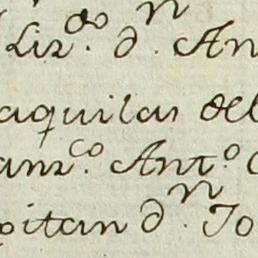 Liz.do D.n An
aquilas del
anz.co Ant.o
pitan D.n Jo